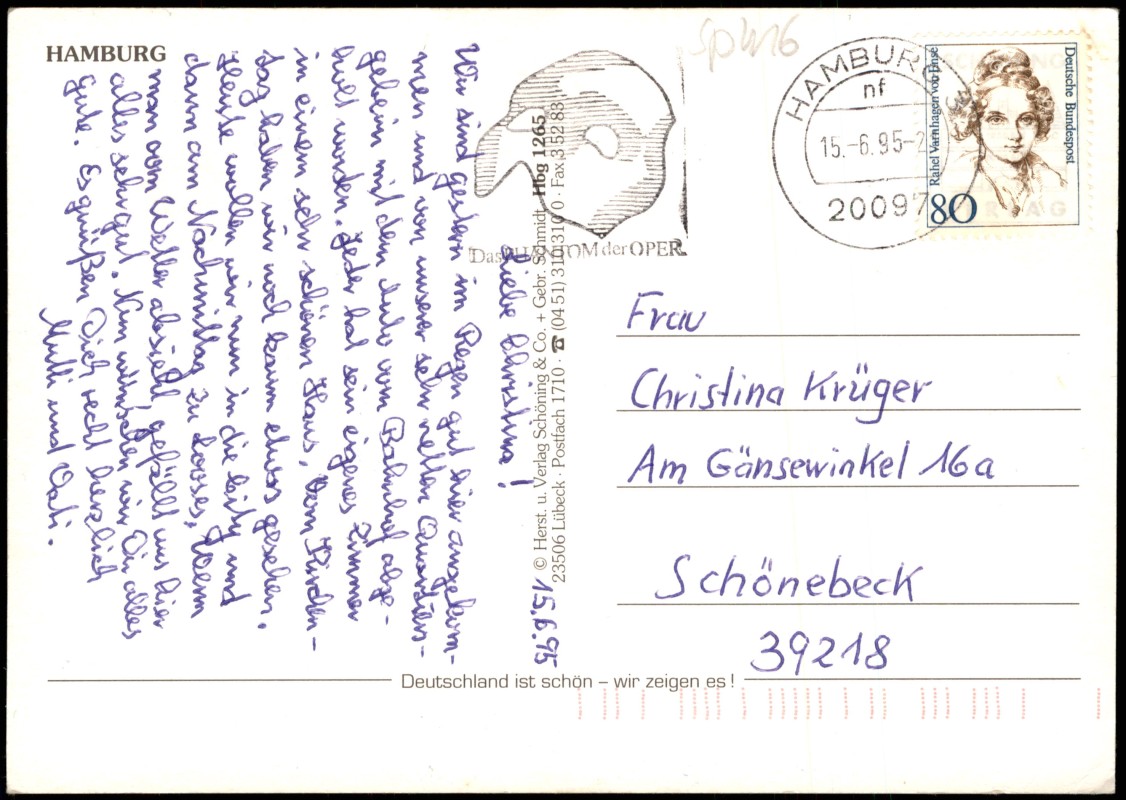 HAMBURG
15.6.95
Liebe Christina!
Wir sind gestern im Regen gut hier angekom-
men und von unserer sehr netten Quartier-
geberin mit dem Auto vom Bahnhof abge-
holt worden. Jeder hat sein eigenes Zimmer
in einem sehr schönen Haus. Vom Kirchen-
tag haben wir noch kaum etwas gesehen.
Heute wollen wir nun in die City und
dann am Nachmittag zu Looses. Wenn
man vom Wetter absieht, gefällt uns hier
alles sehr gut. Nun wünschen wir Dir alles
gute. Es grüßen Dich recht herzlich
Mutti und Vati.
© Herst. u. Verlag Schöning & Co. + Gebr. Schmidt Hbg 1265
23506 Lübeck · Postfach 1710 · ☎ (04 51) 310310 · Fax 3 52 83
Das PHANTOM der OPER
HAMBURG
nf
15.-6.95-2
20097
Rahel Varnhagen von Ense
Deutsche Bundespost
80
Frau
Christina Krüger
Am Gänsewinkel 16a
Schönebeck
39218
Deutschland ist schön – wir zeigen es!